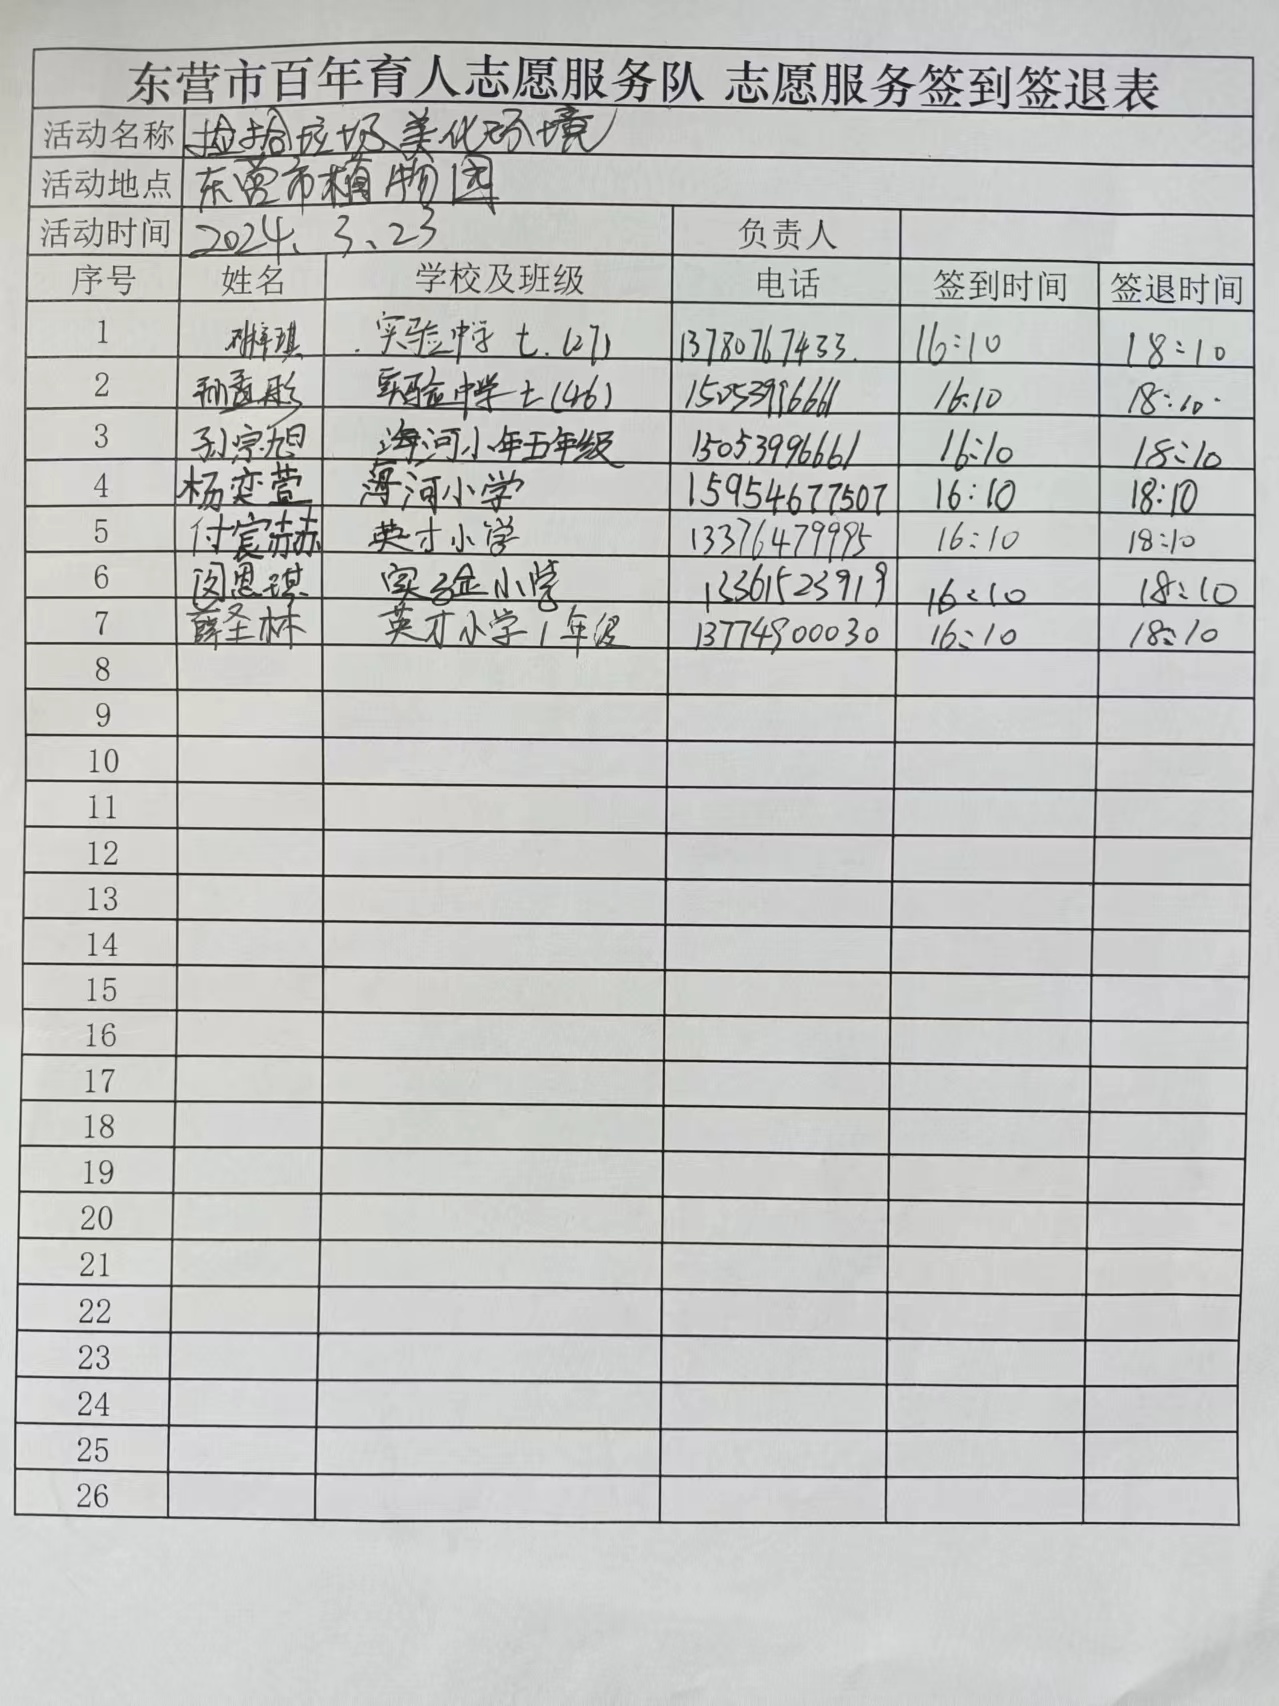 东营市百年育人志愿服务队 志愿服务签到签退表
活动名称 捡拾垃圾美化环境
活动地点 东营市植物园
活动时间 2024、3、23 负责人
序号 姓名 学校及班级 电话 签到时间 签退时间
1 琪 实验中学 七.(27) 13780767433. 16:10 18:10
2 孙孟彤 实验中学七(46) 15053996661 16:10 18:10
3 孙宗旭 海河小年五年级 15053996661 16:10 18:10
4 杨奕萱 河小学 15954677507 16:10 18:10
5 付宸赫 英才小学 13376479995 16:10 18:10
6 闵恩琪 实验小学 13361523919 16:10 18:10
7 薛圣林 英才小学1年级 13774900030 16:10 18:10
8
9
10
11
12
13
14
15
16
17
18
19
20
21
22
23
24
25
26